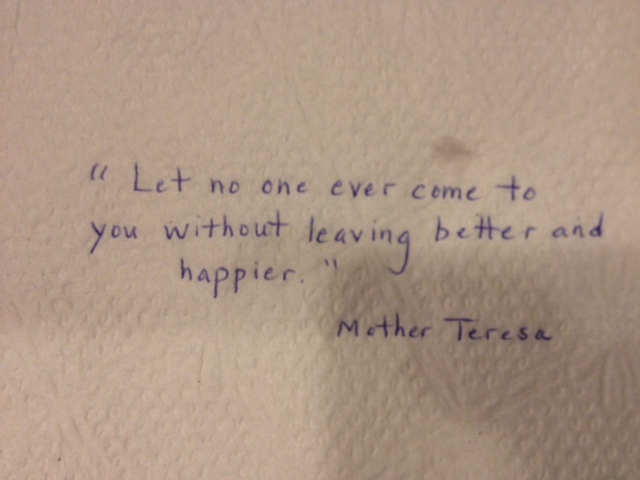 “ Let no one ever come to
you without leaving better and
happier. ”
Mother Teresa